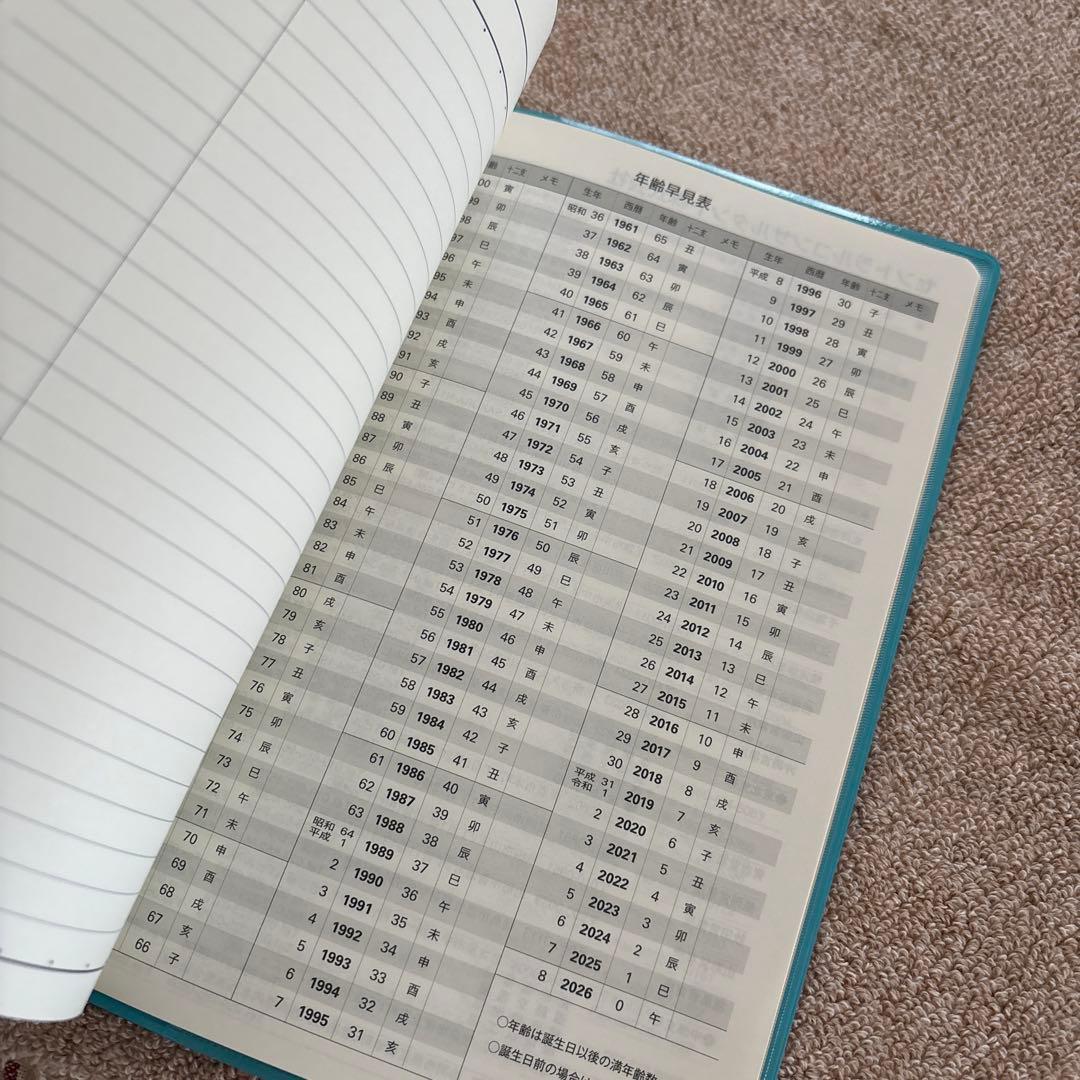 年齢早見表
齢 十二支 メモ
00 寅
99 卯
98 辰
97 巳
96 午
95 未
94 申
93 酉
92 戌
91 亥
90 子
89 丑
88 寅
87 卯
86 辰
85 巳
84 午
83 未
82 申
81 酉
80 戌
79 亥
78 子
77 丑
76 寅
75 卯
74 辰
73 巳
72 午
71 未
70 申
69 酉
68 戌
67 亥
66 子
生年 西暦 年齢 十二支 メモ
昭和 36 1961 65 丑
37 1962 64 寅
38 1963 63 卯
39 1964 62 辰
40 1965 61 巳
41 1966 60 午
42 1967 59 未
43 1968 58 申
44 1969 57 酉
45 1970 56 戌
46 1971 55 亥
47 1972 54 子
48 1973 53 丑
49 1974 52 寅
50 1975 51 卯
51 1976 50 辰
52 1977 49 巳
53 1978 48 午
54 1979 47 未
55 1980 46 申
56 1981 45 酉
57 1982 44 戌
58 1983 43 亥
59 1984 42 子
60 1985 41 丑
61 1986 40 寅
62 1987 39 卯
63 1988 38 辰
昭和 64
平成 1 1989 37 巳
2 1990 36 午
3 1991 35 未
4 1992 34 申
5 1993 33 酉
6 1994 32 戌
7 1995 31 亥
生年 西暦 年齢 十二支 メモ
平成 8 1996 30 子
9 1997 29 丑
10 1998 28 寅
11 1999 27 卯
12 2000 26 辰
13 2001 25 巳
14 2002 24 午
15 2003 23 未
16 2004 22 申
17 2005 21 酉
18 2006 20 戌
19 2007 19 亥
20 2008 18 子
21 2009 17 丑
22 2010 16 寅
23 2011 15 卯
24 2012 14 辰
25 2013 13 巳
26 2014 12 午
27 2015 11 未
28 2016 10 申
29 2017 9 酉
30 2018 8 戌
平成 31
令和 1 2019 7 亥
2 2020 6 子
3 2021 5 丑
4 2022 4 寅
5 2023 3 卯
6 2024 2 辰
7 2025 1 巳
8 2026 0 午
○年齢は誕生日以後の満年齢数
○誕生日前の場合は